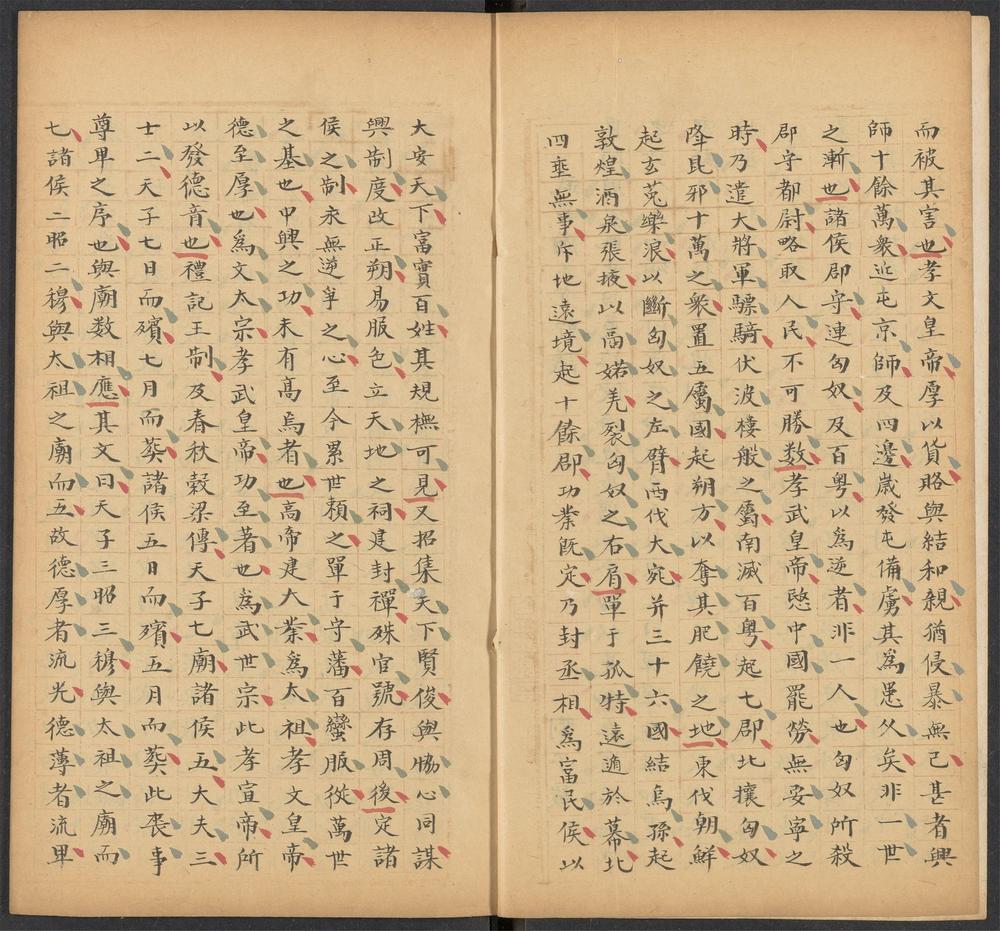 而被其害也孝文皇帝厚以貨賂與結和親猶侵暴無已甚者興
師十餘萬衆近屯京師及四邊歲發屯備虜其爲患久矣非一世
之漸也諸侯郡守連匈奴及百粤以爲逆者非一人也匈奴所殺
郡守都尉略取人民不可勝数孝武皇帝愍中國罷勞無安寧之
時乃遣大將軍驃騎伏波樓般之屬南滅百粤起七郡北攘匈奴
降昆邪十萬之衆置五屬國起朔方以奪其肥饒之地東伐朝鮮
起玄菟樂浪以斷匈奴之左臂西伐大宛并三十六國結烏孫起
敦煌酒泉張掖以鬲婼羌裂匈奴之右肩單于孤特遠遁於幕北
四垂無事斥地遠境起十餘郡功業既定乃封丞相爲富民侯以
大安天下富實百姓其規橅可見又招集天下賢俊與協心同謀
興制度改正朔易服色立天地之祠建封禪殊官號存周後定諸
侯之制永無逆爭之心至今累世賴之單于守藩百蠻服從萬世
之基也中興之功未有高焉者也高帝建大業爲太祖孝文皇帝
德至厚也爲文太宗孝武皇帝功至著也爲武世宗此孝宣帝所
以發德音也禮記王制及春秋穀梁傳天子七廟諸侯五大夫三
士二天子七日而殯七月而葬諸侯五日而殯五月而葬此喪事
尊卑之序也與廟数相應其文曰天子三昭三穆與太祖之廟而
七諸侯二昭二穆與太祖之廟而五故德厚者流光德薄者流卑